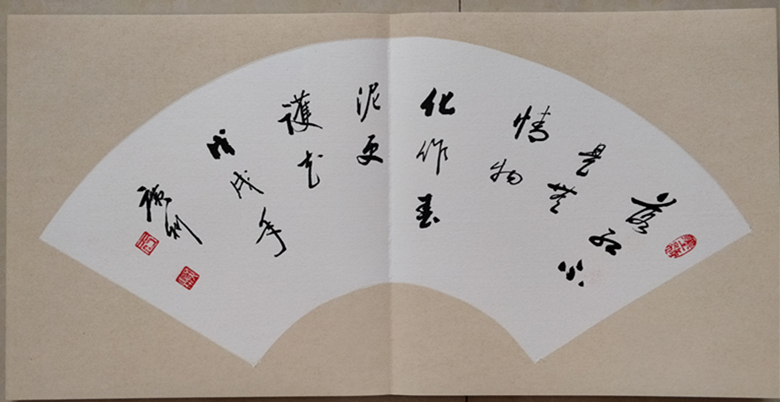 落红不
是無
情物
化作春
泥更
護花
戊戌年